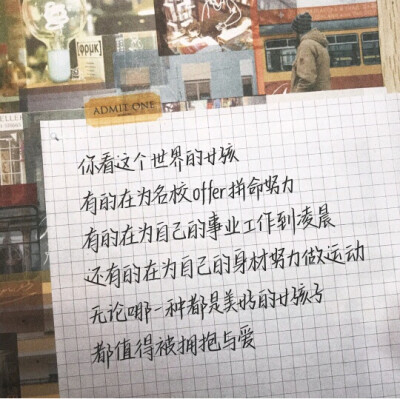 ФРЦК
ADMIT ONE
你看这个世界的女孩
有的在为名校offer拼命努力
有的在为自己的事业工作到凌晨
还有的在为自己的身材努力做运动
无论哪一种都是美好的女孩子
都值得被拥抱与爱